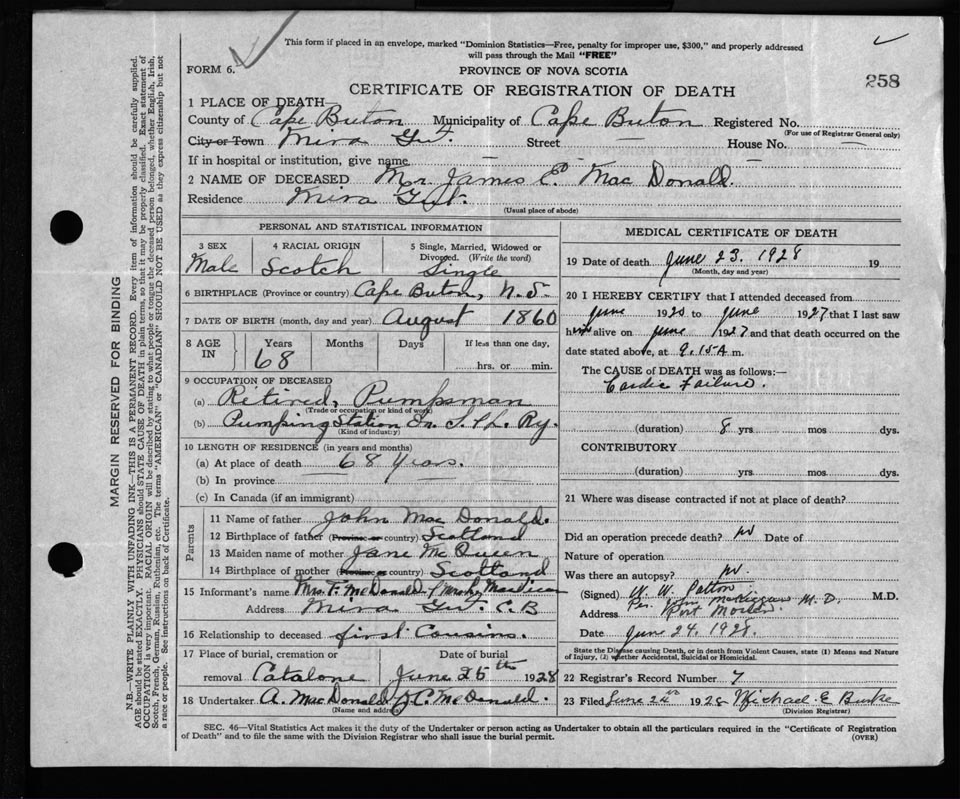 This form if placed in an envelope, marked "Dominion Statistics—Free, penalty for improper use, $300," and properly addressed
will pass through the Mail "FREE"
FORM 6.
PROVINCE OF NOVA SCOTIA
CERTIFICATE OF REGISTRATION OF DEATH
258
1 PLACE OF DEATH
County of Cape Breton Municipality of Cape Breton Registered No.
(For use of Registrar General only)
City or Town Mira Gut. Street — House No. —
If in hospital or institution, give name —
2 NAME OF DECEASED Mr. James C. Mac Donald.
Residence Mira Gut.
(Usual place of abode)
PERSONAL AND STATISTICAL INFORMATION
3 SEX Male
4 RACIAL ORIGIN Scotch
5 Single, Married, Widowed or Divorced. (Write the word) Single
6 BIRTHPLACE (Province or country) Cape Breton, N.S.
7 DATE OF BIRTH (month, day and year) August 1860
8 AGE IN Years 68 Months Days If less than one day, hrs. or min.
9 OCCUPATION OF DECEASED
(a) Retired, Pumpsman
(Trade or occupation or kind of work)
(b) Pumping Station On S. & L. Ry.
(Kind of industry)
10 LENGTH OF RESIDENCE (in years and months)
(a) At place of death 68 Years.
(b) In province
(c) In Canada (if an immigrant)
Parents
11 Name of father John Mac Donald.
12 Birthplace of father (Province or country) Scotland
13 Maiden name of mother Jane McQueen
14 Birthplace of mother (Province or country) Scotland
15 Informant's name Mrs. F. McDonald
Address Mira Gut. C.B
16 Relationship to deceased first Cousins.
17 Place of burial, cremation or removal Catalone
Date of burial June 25th 1928
18 Undertaker A. MacDonald J.C. McDonald.
(Name and address)
MEDICAL CERTIFICATE OF DEATH
19 Date of death June 23. 1928 19
(Month, day and year)
20 I HEREBY CERTIFY that I attended deceased from
June 1920 to June 1927 that I last saw
him alive on June 1927 and that death occurred on the
date stated above, at 9.15 A m.
The CAUSE of DEATH was as follows:—
Cardic Failure.
(duration) 8 yrs mos dys.
CONTRIBUTORY
(duration) yrs. mos. dys.
21 Where was disease contracted if not at place of death?
Did an operation precede death? no Date of
Nature of operation
Was there an autopsy? no.
(Signed) W. W. Patton M.D.
Per. M.D.
Address Port Morien
Date June 24. 1928.
State the Disease causing Death, or in death from Violent Causes, state (1) Means and Nature
of Injury, (2) whether Accidental, Suicidal or Homicidal.
22 Registrar's Record Number 7
23 Filed June 24th 1928 Michael E Burke
(Division Registrar)
SEC. 46—Vital Statistics Act makes it the duty of the Undertaker or person acting as Undertaker to obtain all the particulars required in the "Certificate of Registration
of Death" and to file the same with the Division Registrar who shall issue the burial permit.
(OVER)
MARGIN RESERVED FOR BINDING
N.B.—WRITE PLAINLY WITH UNFADING INK—THIS IS A PERMANENT RECORD. Every item of information should be carefully supplied.
AGE should be stated EXACTLY. PHYSICIANS should STATE CAUSE OF DEATH in plain terms, so that it may be properly classified. Exact statement of
OCCUPATION is very important. RACIAL ORIGIN will be described by stating to what people or tongue the deceased person belonged, whether English, Irish,
Scotch, French, German, Russian, Ruthenian, etc. The terms "AMERICAN" or "CANADIAN" SHOULD NOT BE USED as they express citizenship but not
a race or people. See instructions on back of Certificate.